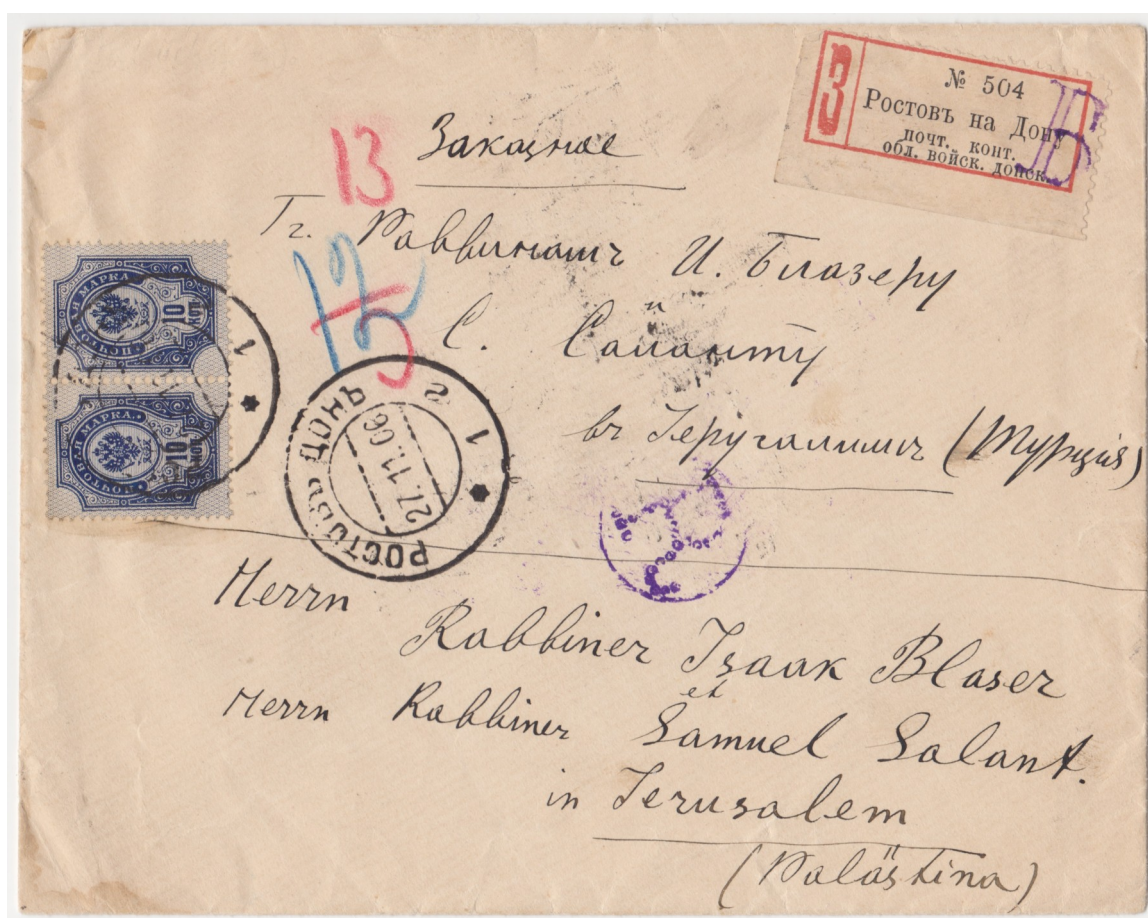 № 504
З
Ростовъ на Дону
почт. конт.
обл. войск. донск.
Б
13
Заказное
Гг. Раввинамъ И. Блазеру
и
С. Саланту
въ Іерусалимъ (Турція)
12
ПОЧТОВАЯ МАРКА
10 КОП
ПОЧТОВАЯ МАРКА
10 КОП
1
РОСТОВЪ ДОНЪ
27.11.06
1 2
Herrn
Rabbiner Isaak Blaser
et
Herrn Rabbiner Samuel Salant.
in Jerusalem
(Palästina)